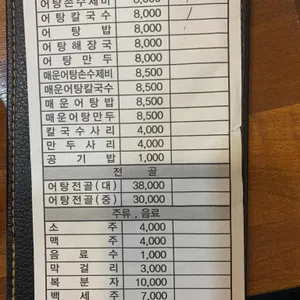 어탕손수제비 8,000
어탕칼국수 8,000
어탕밥 8,000
어탕해장국 8,000
어탕만두 8,000
매운어탕손수제비 8,500
매운어탕칼국수 8,500
매운어탕밥 8,500
매운어탕만두 8,500
칼국수사리 4,000
만두사리 4,000
공기밥 1,000
전골
어탕전골(대) 38,000
어탕전골(중) 30,000
주류, 음료
소주 4,000
맥주 4,000
음료수 1,000
막걸리 3,000
복분자 10,000
백세주 7,000